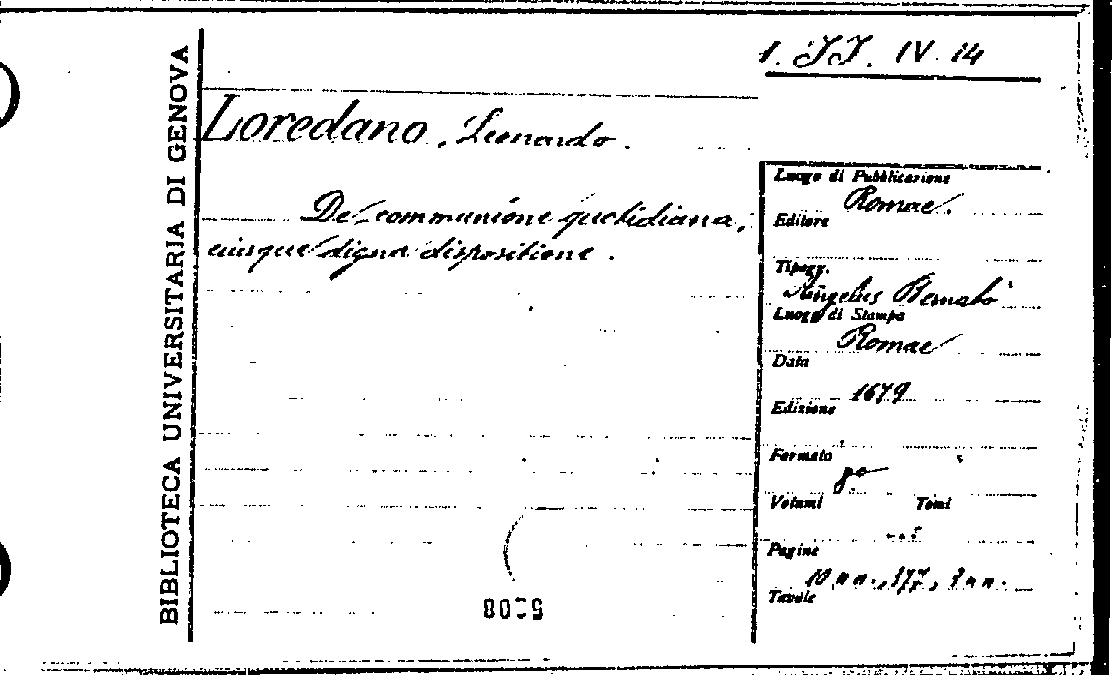 BIBLIOTECA UNIVERSITARIA DI GENOVA
1. JJ. IV. 14
Loredano, Leonardo.
De communione quotidiana,
eiusque digna dispositione.
Luogo di Pubblicazione
Romae.
Editore
Tipogr.
Angelus Bernabò
Luogo di Stampa
Romae
Data
1679
Edizione
Formato
8°
Volumi Tomi
Pagine
10 nn., 377, 3 nn.
Tavole